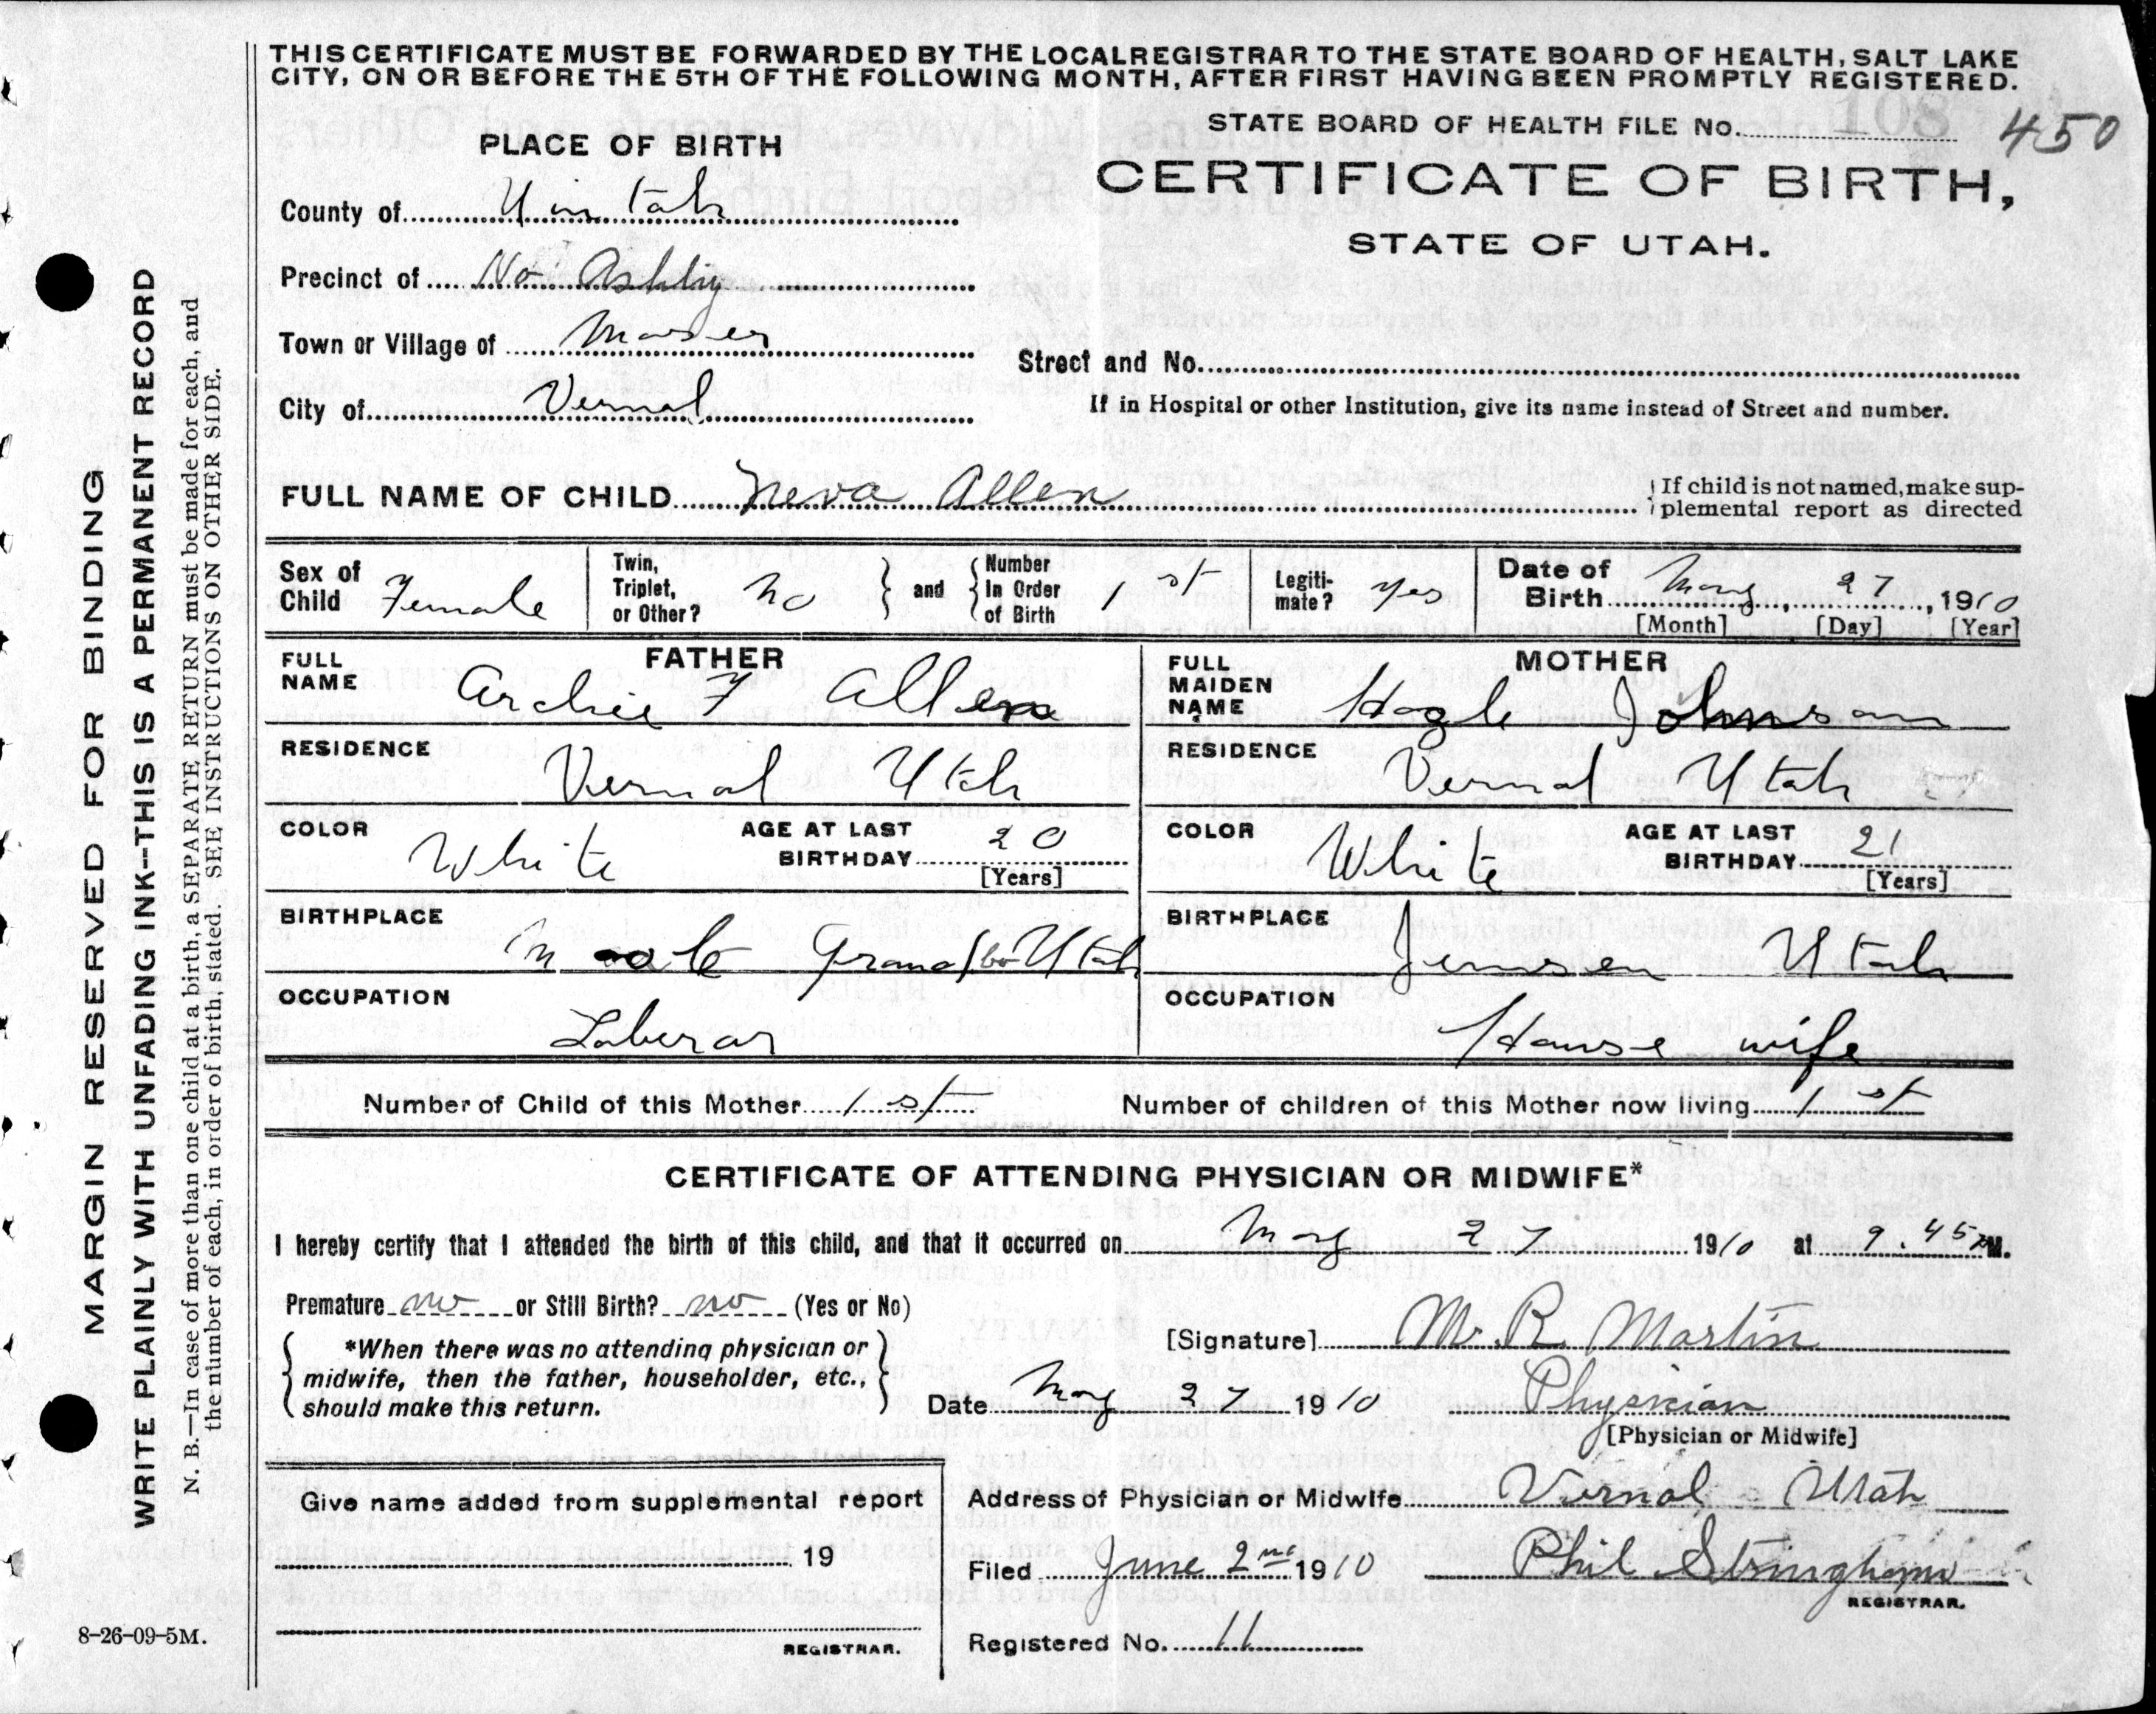 THIS CERTIFICATE MUST BE FORWARDED BY THE LOCAL REGISTRAR TO THE STATE BOARD OF HEALTH, SALT LAKE
CITY, ON OR BEFORE THE 5TH OF THE FOLLOWING MONTH, AFTER FIRST HAVING BEEN PROMPTLY REGISTERED.
STATE BOARD OF HEALTH FILE No. 108 450
PLACE OF BIRTH
CERTIFICATE OF BIRTH,
STATE OF UTAH.
County of Uintah
Precinct of No Ashley
Town or Village of Maser
City of Vernal
Street and No.
If in Hospital or other Institution, give its name instead of Street and number.
FULL NAME OF CHILD Neva Allen
If child is not named, make sup-
plemental report as directed
Sex of Child Female
Twin, Triplet, or Other? no
and Number In Order of Birth 1st
Legiti-mate? yes
Date of Birth May, 27, 1910
[Month] [Day] [Year]
FATHER
FULL NAME Archie F Allen
MOTHER
FULL MAIDEN NAME Johnson
RESIDENCE Vernal Utah
RESIDENCE Vernal Utah
COLOR White
AGE AT LAST BIRTHDAY 20
[Years]
COLOR White
AGE AT LAST BIRTHDAY 21
[Years]
BIRTHPLACE Utah
BIRTHPLACE Jensen Utah
OCCUPATION Laberar
OCCUPATION House wife
Number of Child of this Mother 1st
Number of children of this Mother now living 1st
CERTIFICATE OF ATTENDING PHYSICIAN OR MIDWIFE*
I hereby certify that I attended the birth of this child, and that it occurred on May 27 1910 at 9.45 PM.
Premature no or Still Birth? no (Yes or No)
*When there was no attending physician or
midwife, then the father, householder, etc.,
should make this return.
[Signature] M. R. Martin
Date May 27 1910
Physician
[Physician or Midwife]
Give name added from supplemental report
19
REGISTRAR.
Address of Physician or Midwife Vernal Utah
Filed June 2nd 1910
Phil Stringham
REGISTRAR.
Registered No. 11
8-26-09-5M.
MARGIN RESERVED FOR BINDING
WRITE PLAINLY WITH UNFADING INK--THIS IS A PERMANENT RECORD
N. B.—In case of more than one child at a birth, a SEPARATE RETURN must be made for each, and
the number of each, in order of birth, stated. SEE INSTRUCTIONS ON OTHER SIDE.